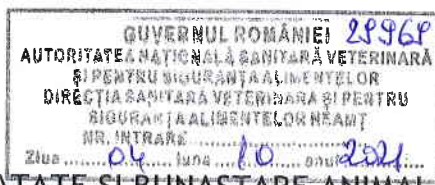 GUVERNUL ROMÂNIEI 29969
AUTORITATEA NAȚIONALĂ SANITARĂ VETERINARĂ
ȘI PENTRU SIGURANȚA ALIMENTELOR
DIRECȚIA SANITARĂ VETERINARĂ ȘI PENTRU
SIGURANȚA ALIMENTELOR NEAMȚ
NR. INTRARE
Ziua 04 luna 10 anul 2021
ĂTATE ȘI BUNĂSTARE ANIMAL